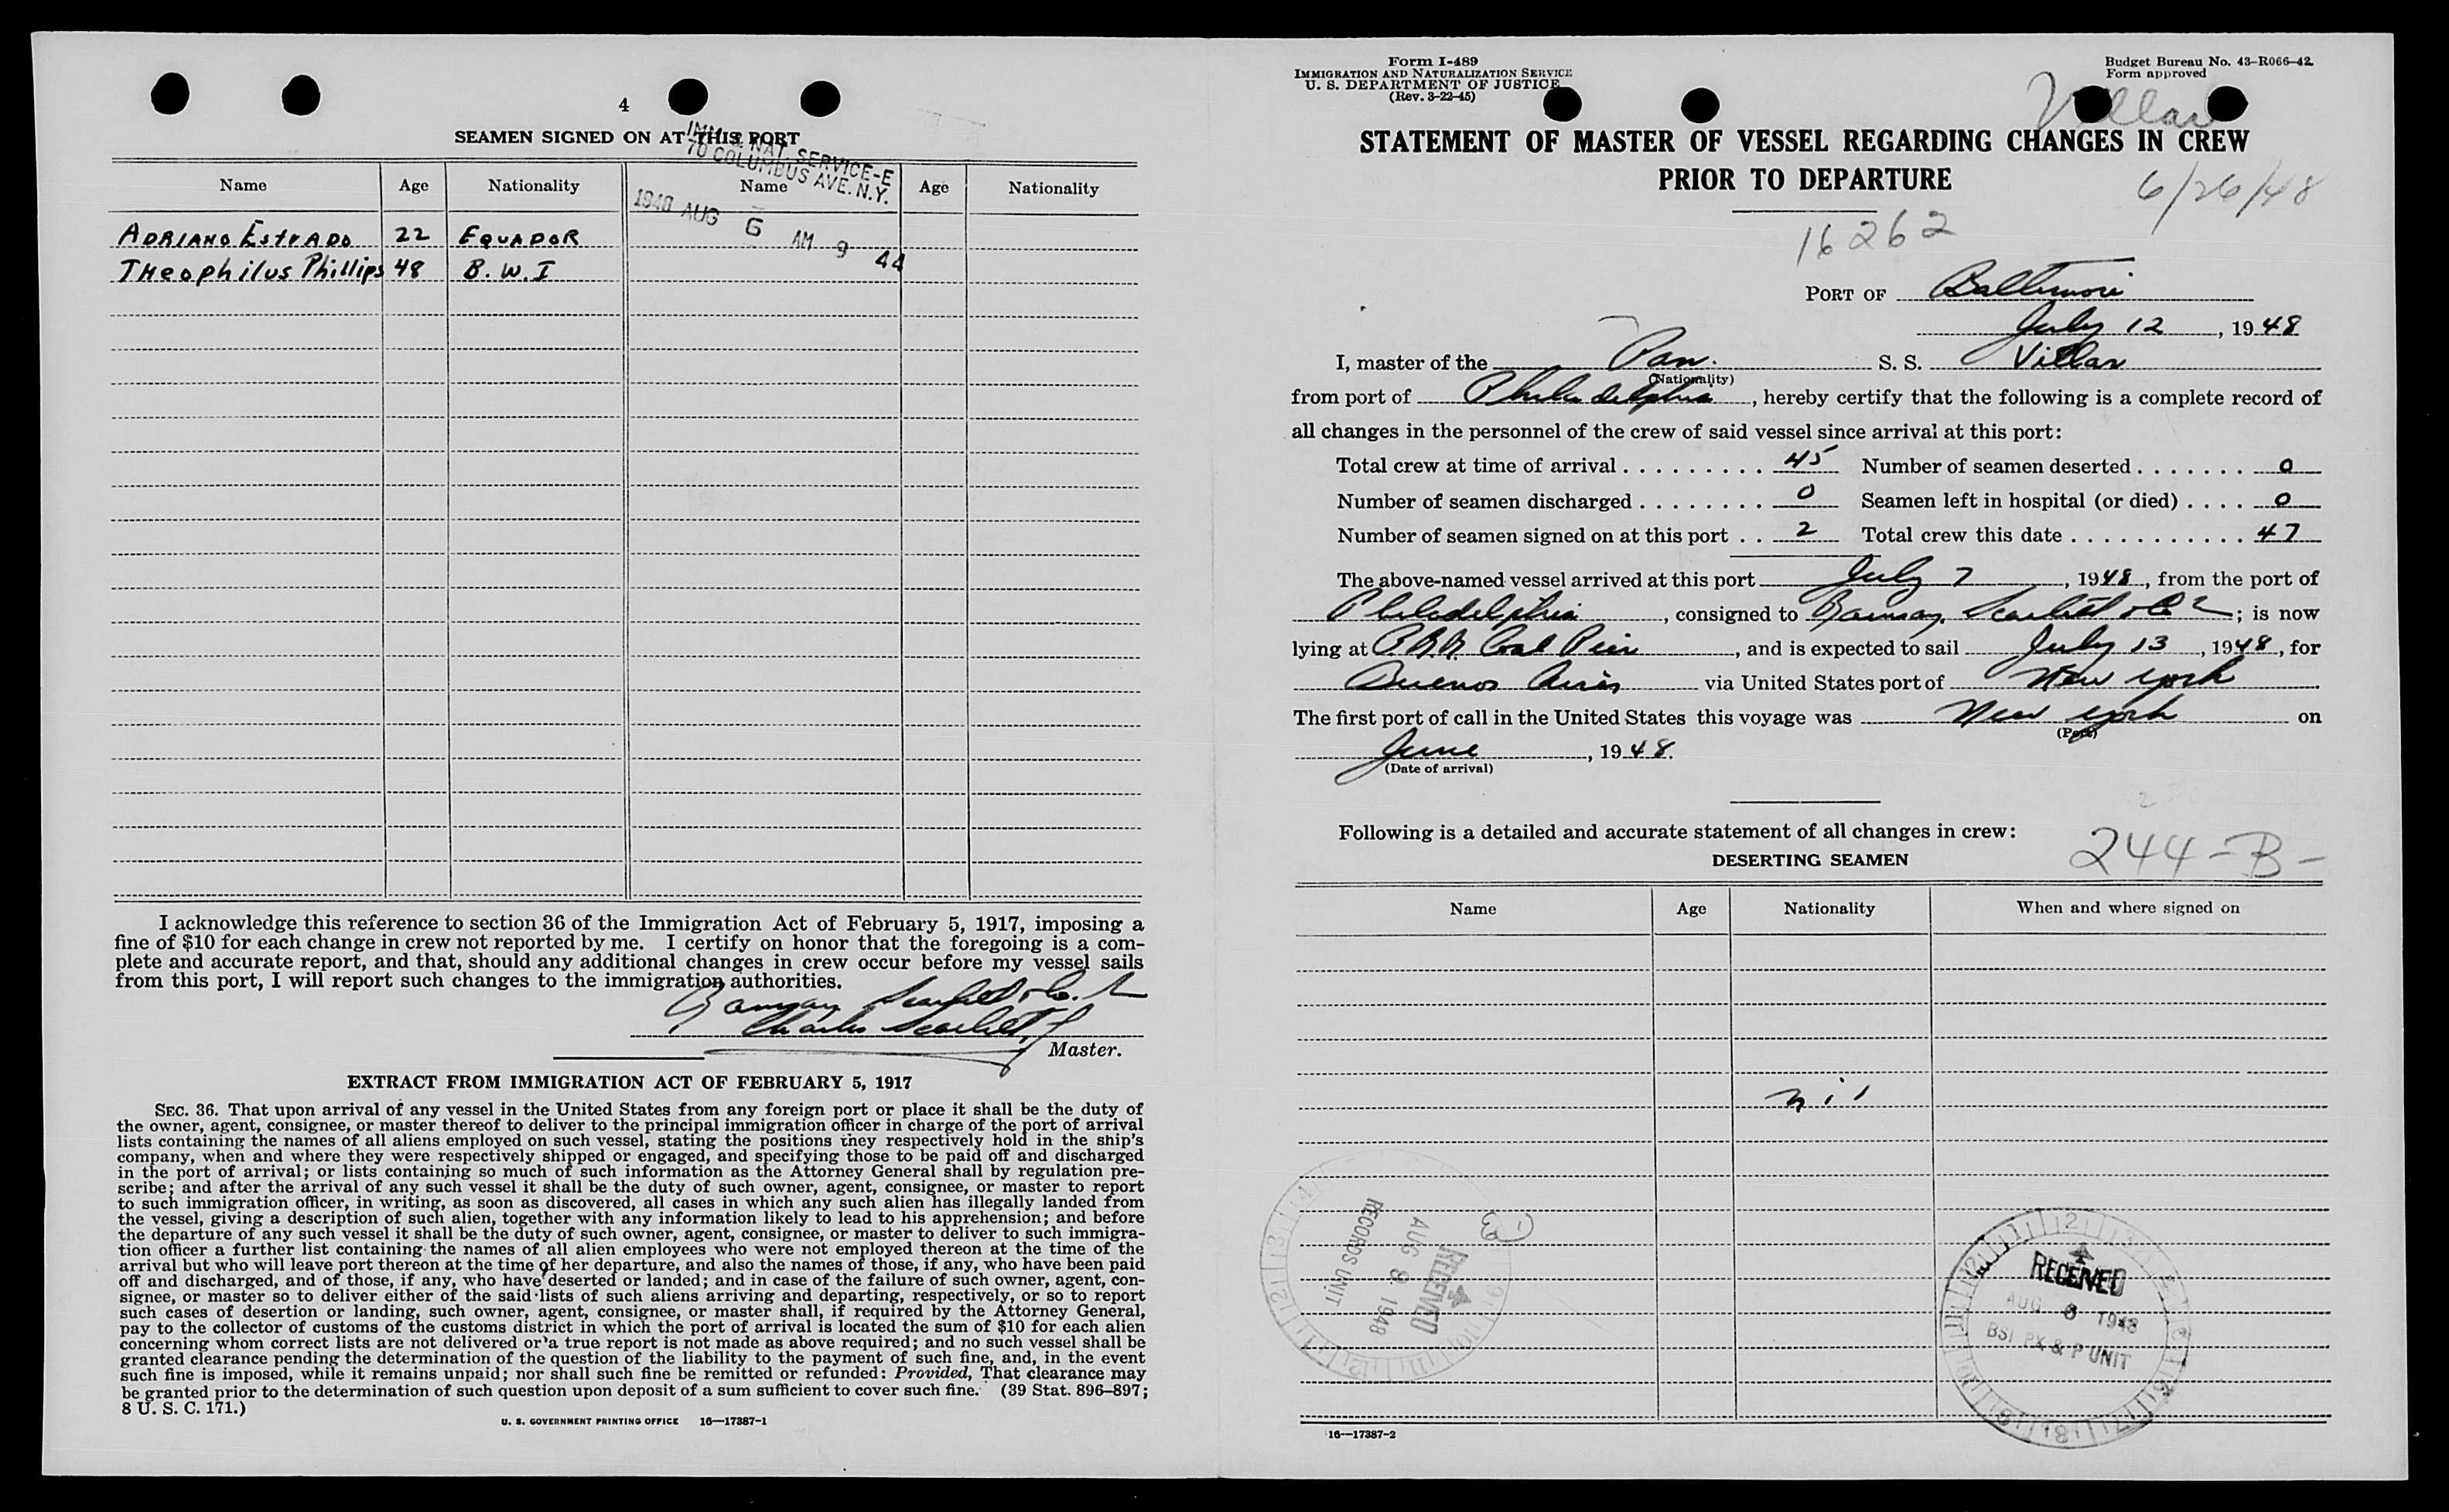 4
SEAMEN SIGNED ON AT THIS PORT
IMM. & NAT. SERVICE-E
70 COLUMBUS AVE. N.Y.
1948 AUG 6 AM 9 44
Name Age Nationality Name Age Nationality
ADRIANO ESTRADO 22 EQUADOR
THeophilus Phillips 48 B.W.I
I acknowledge this reference to section 36 of the Immigration Act of February 5, 1917, imposing a
fine of $10 for each change in crew not reported by me. I certify on honor that the foregoing is a com-
plete and accurate report, and that, should any additional changes in crew occur before my vessel sails
from this port, I will report such changes to the immigration authorities.
Ramsay Scarlett & Co.
Charles Scarlett
Master.
EXTRACT FROM IMMIGRATION ACT OF FEBRUARY 5, 1917
SEC. 36. That upon arrival of any vessel in the United States from any foreign port or place it shall be the duty of
the owner, agent, consignee, or master thereof to deliver to the principal immigration officer in charge of the port of arrival
lists containing the names of all aliens employed on such vessel, stating the positions they respectively hold in the ship's
company, when and where they were respectively shipped or engaged, and specifying those to be paid off and discharged
in the port of arrival; or lists containing so much of such information as the Attorney General shall by regulation pre-
scribe; and after the arrival of any such vessel it shall be the duty of such owner, agent, consignee, or master to report
to such immigration officer, in writing, as soon as discovered, all cases in which any such alien has illegally landed from
the vessel, giving a description of such alien, together with any information likely to lead to his apprehension; and before
the departure of any such vessel it shall be the duty of such owner, agent, consignee, or master to deliver to such immigra-
tion officer a further list containing the names of all alien employees who were not employed thereon at the time of the
arrival but who will leave port thereon at the time of her departure, and also the names of those, if any, who have been paid
off and discharged, and of those, if any, who have deserted or landed; and in case of the failure of such owner, agent, con-
signee, or master so to deliver either of the said lists of such aliens arriving and departing, respectively, or so to report
such cases of desertion or landing, such owner, agent, consignee, or master shall, if required by the Attorney General,
pay to the collector of customs of the customs district in which the port of arrival is located the sum of $10 for each alien
concerning whom correct lists are not delivered or a true report is not made as above required; and no such vessel shall be
granted clearance pending the determination of the question of the liability to the payment of such fine, and, in the event
such fine is imposed, while it remains unpaid; nor shall such fine be remitted or refunded: Provided, That clearance may
be granted prior to the determination of such question upon deposit of a sum sufficient to cover such fine. (39 Stat. 896-897;
8 U. S. C. 171.)
U. S. GOVERNMENT PRINTING OFFICE 16—17387-1
Form I-489
IMMIGRATION AND NATURALIZATION SERVICE
U. S. DEPARTMENT OF JUSTICE
(Rev. 3-22-45)
Budget Bureau No. 43-R066-42
Form approved
Villar
STATEMENT OF MASTER OF VESSEL REGARDING CHANGES IN CREW
PRIOR TO DEPARTURE
6/26/48
16262
PORT OF Baltimore
July 12, 1948
I, master of the Pan. S. S. Villar
(Nationality)
from port of Philadelphia, hereby certify that the following is a complete record of
all changes in the personnel of the crew of said vessel since arrival at this port:
Total crew at time of arrival . . . . . . . . . 45 Number of seamen deserted . . . . . . . 0
Number of seamen discharged . . . . . . . . 0 Seamen left in hospital (or died) . . . . 0
Number of seamen signed on at this port . . 2 Total crew this date . . . . . . . . . . . 47
The above-named vessel arrived at this port July 7, 1948, from the port of
Philadelphia, consigned to Ramsay, Scarlett & Co; is now
lying at P.R.R. Coal Pier, and is expected to sail July 13, 1948, for
Buenos Aires via United States port of New York
The first port of call in the United States this voyage was New York on
(Port)
June, 1948.
(Date of arrival)
Following is a detailed and accurate statement of all changes in crew:
244-B-
DESERTING SEAMEN
Name Age Nationality When and where signed on
nil
RECEIVED
AUG 8 1948
RECORDS UNIT
RECEIVED
AUG 8 1948
BSI PX & P UNIT
16—17387-2